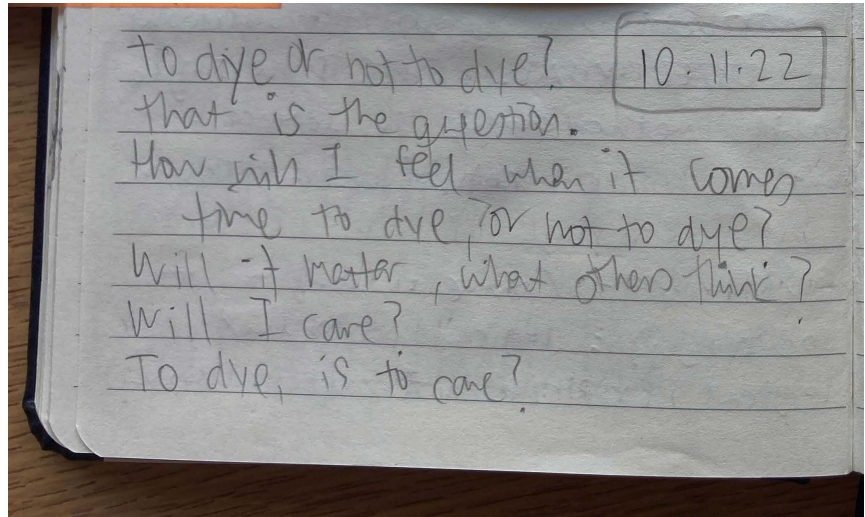 to diye or not to dye? 10.11.22
that is the question.
How will I feel when it comes
time to dye, or not to dye?
Will it matter, what others think?
Will I care?
To dye, is to care?